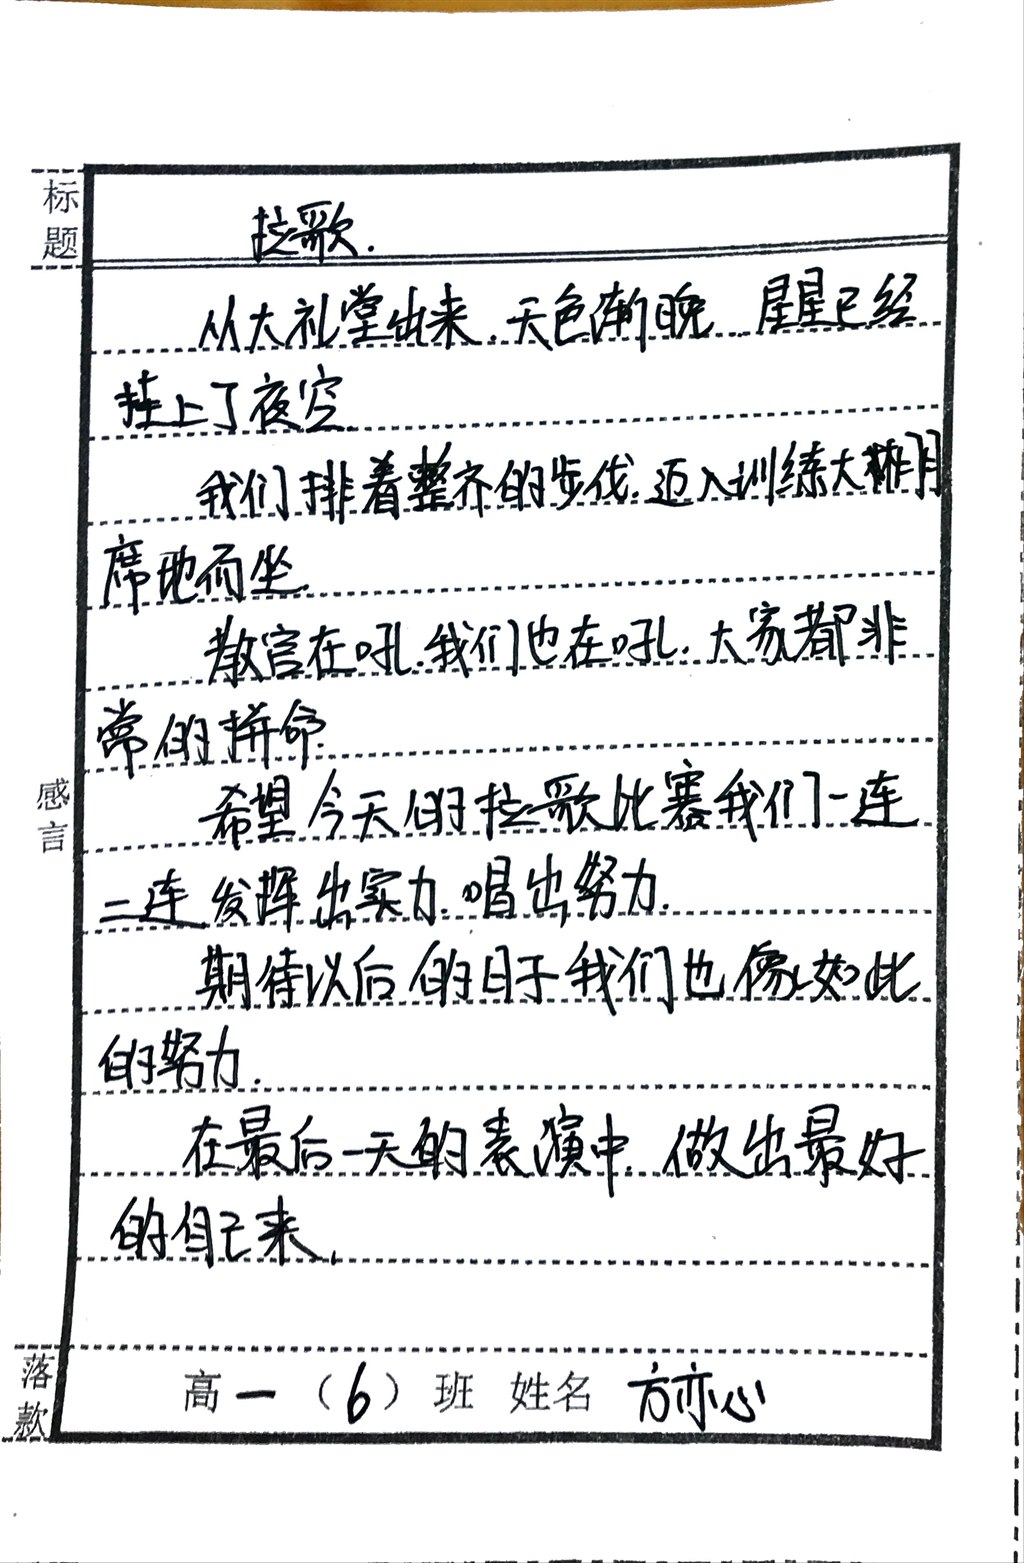 标题
拉歌.
从大礼堂出来.天色渐晚.星星已经
挂上了夜空.
我们排着整齐的步伐.迈入训练大棚
席地而坐.
教官在吼.我们也在吼.大家都非
常的拼命.
感言
希望今天的拉歌比赛我们一连
二连发挥出实力.唱出努力.
期待以后的日子我们也像如此
的努力.
在最后一天的表演中.做出最好
的自己来.
落款
高一（6）班 姓名 方亦心